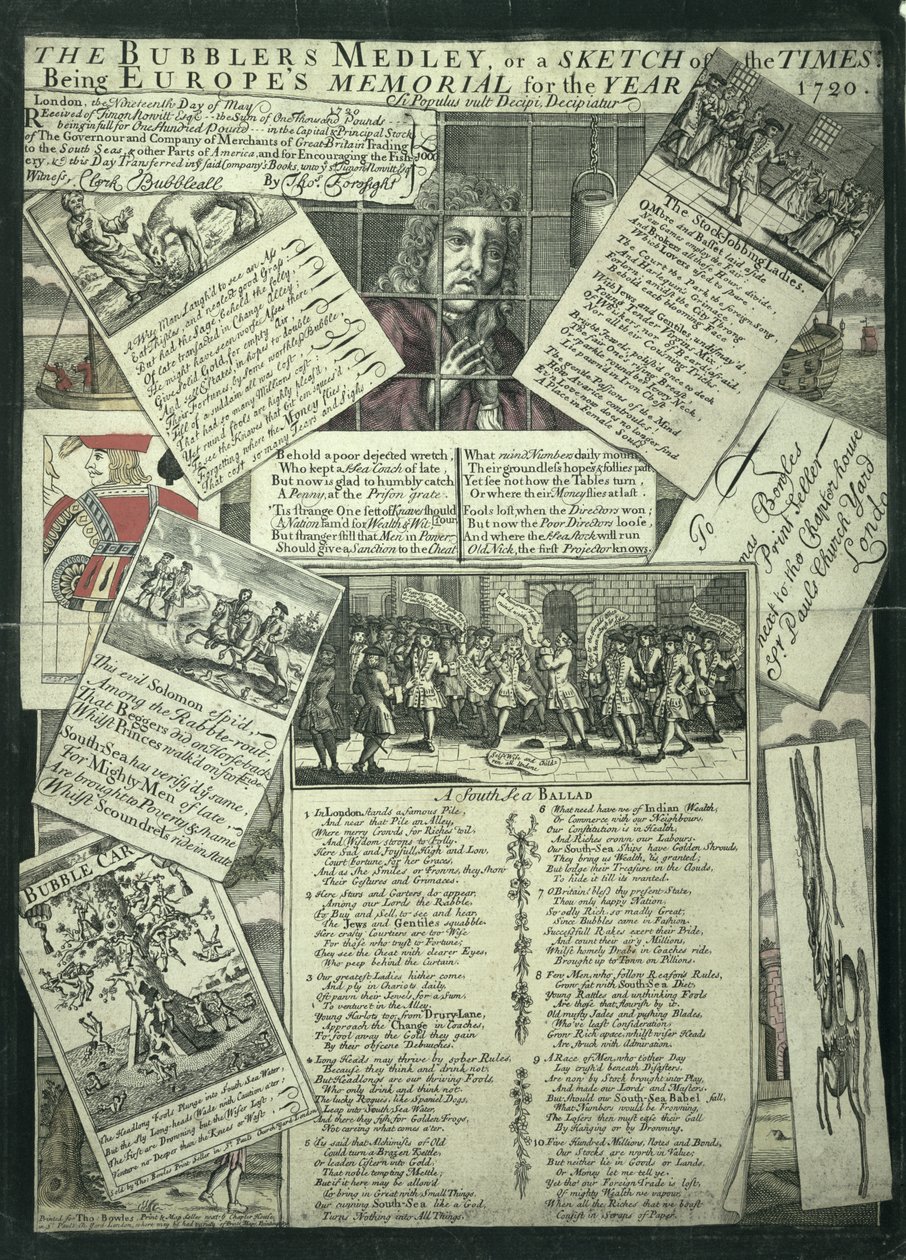 THE BUBBLERS MEDLEY, or a SKETCH of the TIMES:
Being EUROPE'S MEMORIAL for the YEAR 1720.
Si Populus vult Decipi, Decipiatur
London, the Nineteenth Day of May 1720
Received of Timon Homitt Esqr. the Sum of One Thousand Pounds
being in full for One Hundred Pound in the Capital & Principal Stock
of The Governour and Company of Merchants of Great Britain Trading
to the South Seas, & other Parts of America, and for Encouraging the Fish-
ery, & this Day Transferred in ye said Company's Books, unto ye sd.
Witness, Clerk Bubbleall By Tho. Foresight
£1000
A Wise Man Laugh'd to see an Ass
Eat Thistles, and neglect good Grass
But had the Sage beheld the folly
Of late transacted in Change Alley
He might have seen worse Asses there
Give solid Gold for empty Air
And sell Estates in hopes to double
Their Fortunes by some worthless Bubble,
Till of a sudden all was lost
That had so many Millions cost;
Yet ruin'd fools are highly pleas'd
To see the Knaves that bit 'em squeez'd
Forgetting where the Money flies
That cost so many Tears and Sighs
The Stock-Jobbing Ladies.
OMbre and Basset laid aside
New Games employ the Fair;
And Brokers all those Hours divide,
Which Lovers us'd to share
The Court, the Park, the foreign song
And Harlequin's Grimace
Forlorn; amidst the City Throng
Behold each blooming Face
With Jews and Gentiles undismay'd
Young tender Virgins Mix,
Of Whiskers nor of Beards afraid
Nor all their Couzning Tricks
Bright Jewels, polish'd once to deck
The fair One's rising Breast
Or sparkle round her Ivory Neck
Lye pawn'd in Iron Chest
The gentle Passions of the Mind
How Avarice Controules!
E'en Love now does no longer find
A Place in Female Souls
Behold a poor dejected wretch,
Who kept a Sea Coach of late,
But now is glad to humbly catch
A Penny, at the Prison grate.
'Tis strange One sett of Knaves should sour
A Nation fam'd for Wealth & Wit;
But stranger still that Men in Power
Should give a Sanction to the Cheat
What ruin'd Numbers daily mourn
Their groundless hopes & follies past
Yet see not how the Tables turn,
Or where their Money flies at last.
Fools lost when the Directors won;
But now the Poor Directors loose,
And where the Sea Stock will run
Old Nick, the first Projector knows.
To
mas Bowles
Print Seller
next to the Chapter house
St. Pauls Church Yard
London
This evil Solomon espi'd,
Among the Rabble-rout;
That Beggers did on Horseback ride
Whilst Princes walk'd on foot
South-Sea has verify'd ye same
For Mighty Men of late
Are brought to Poverty & shame
Whilst Scoundrels ride in State
BUBBLE CAR
The Headlong Fools Plunge into South Sea Water,
But the Sly Long-heads Wade with Caution a'ter,
The First are Drowning but the Wiser Last
Venture no Deeper than the Knees or Waist
Sold by Tho: Bowles Print Seller in St. Pauls Church Yard London
A South Sea BALLAD
1 In London stands a famous Pile,
And near that Pile an Alley,
Where merry Crowds for Riches toil,
And Wisdom stoops to Folly:
Here Sad and Joyfull, High and Low,
Court Fortune for her Graces,
And as She Smiles or Frowns, they Show
Their Gestures and Grimaces.
2 Here Stars and Garters do appear,
Among our Lords the Rabble,
To Buy and Sell, to see and hear
The Jews and Gentiles squabble.
Here crafty Courtiers are too Wise
For those who trust to Fortune;
They see the Cheat with clearer Eyes,
Who peep behind the Curtain.
3 Our greatest Ladies hither come,
And ply in Chariots daily,
Oft pawn their Jewels for a Sum,
To venture't in the Alley.
Young Harlots too, from Drury Lane,
Approach the Change in Coaches,
To fool away the Gold they gain
By their obscene Debauches.
4 Long Heads may thrive by sober Rules,
Because they think and drink not;
But Headlongs are our thriving Fools,
Who only drink and think not:
The lucky Rogues, like Spaniel Dogs,
Leap into South Sea Water,
And there they fish for Golden Frogs,
Not caring what comes a'ter.
5 'Tis said that Alchimists of Old
Could turn a Brazen Kettle,
Or leaden Cistern into Gold,
That noble tempting Mettle;
But if it here may be allow'd
To bring in Great with Small Things,
Our cunning South-Sea like a God,
Turns Nothing into All Things.
6 What need have we of Indian Wealth,
Or Commerce with our Neighbours,
Our Constitution is in Health,
And Riches crown our Labours:
Our South-Sea Ships have Golden Shrouds,
They bring us Wealth, 'tis granted;
But lodge their Treasure in the Clouds,
To hide it till its wanted.
7 O Britain! bless thy present State,
Thou only happy Nation,
So odly Rich, so madly Great,
Since Bubbles came in Fashion.
Successfull Rakes exert their Pride,
And count their airy Millions,
Whilst homely Drabs in Coaches ride,
Brought up to Town on Pillions.
8 Few Men, who follow Reasons Rules,
Grow fat with South-Sea Diet;
Young Rattles and unthinking Fools
Are those that flourish by it.
Old musty Jades and pushing Blades,
Who've least Consideration,
Grow Rich apace, whilst wiser Heads
Are struck with Admiration.
9 A Race of Men, who tother Day
Lay crush'd beneath Disasters,
Are now by Stock brought into Play,
And made our Lords and Masters:
But should our South-Sea Babel fall,
What Numbers would be Frowning,
The Losers then must ease their Gall
By Hanging or by Drowning.
10 Five Hundred Millions, Notes and Bonds,
Our Stocks are worth in Value;
But neither lie in Goods or Lands,
Or Money let me tell ye.
Yet tho' our Foreign Trade is lost,
Of mighty Wealth we vapour,
When all the Riches that we boast
Consist in Scraps of Paper.
Printed for Tho: Bowles Print & Map Seller next ye Chapter House,
in St. Pauls Ch. Yard London, where may be had variety of